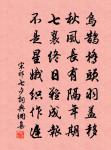 烏鵲橋頭羽蓋移
秋風長有隔年期
七襄終日難成報
不是星娥織作遲
宋祁七夕詩與網集